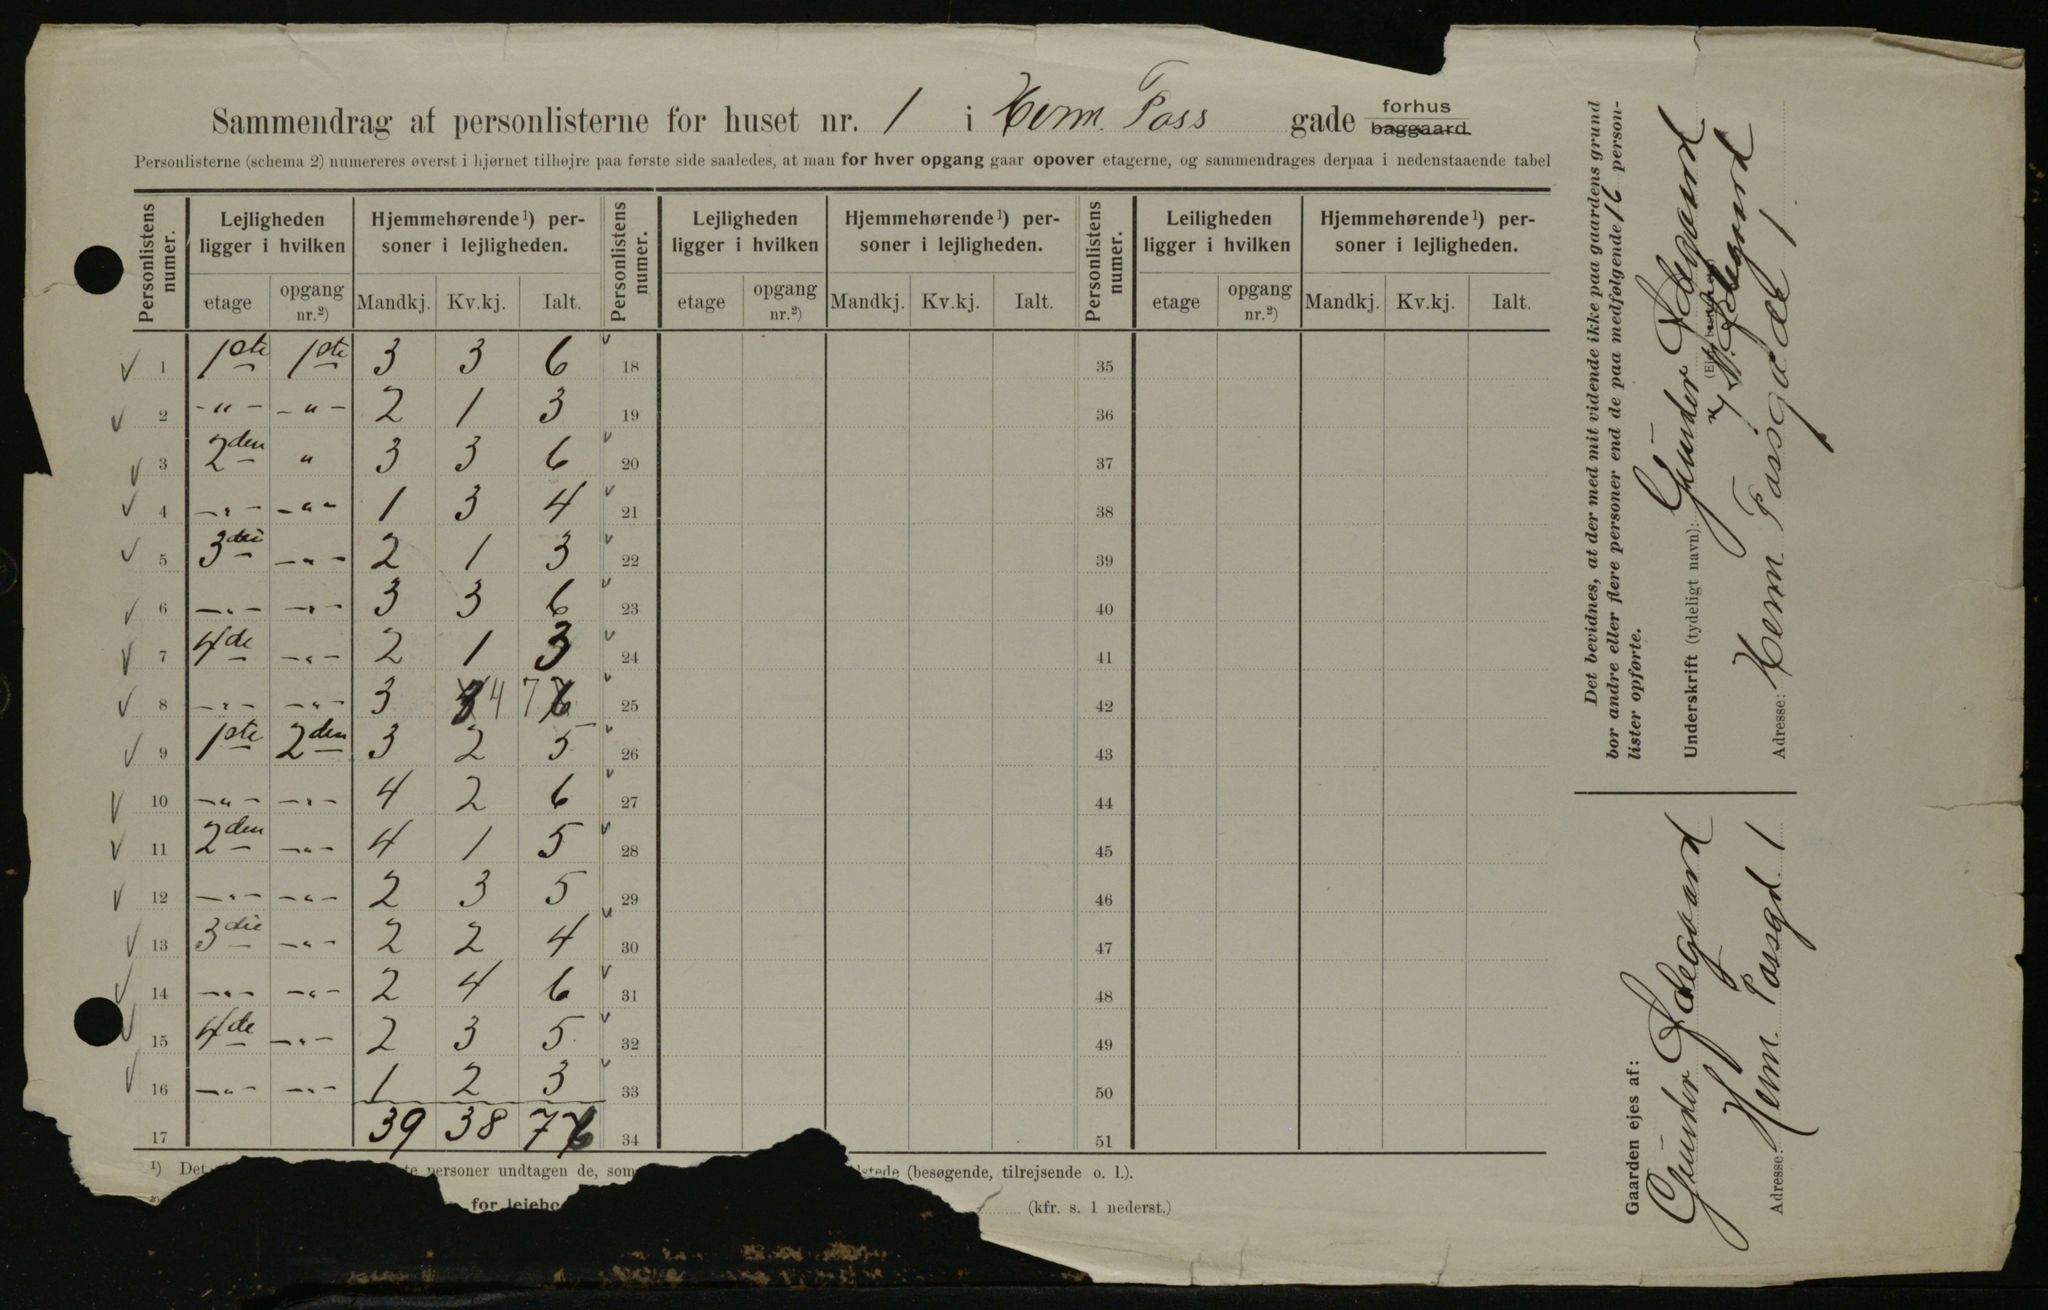 Sammendrag af personlisterne for huset nr. 1 i Herm. Foss gade forhus baggaard.
Personlisterne (schema 2) numereres øverst i hjørnet tilhøjre paa første side saaledes, at man for hver opgang gaar opover etagerne, og sammendrages derpaa i nedenstaaende tabel
Personlistens numer. Lejligheden ligger i hvilken Hjemmehørende¹) personer i lejligheden. Personlistens numer. Lejligheden ligger i hvilken Hjemmehørende¹) personer i lejligheden. Personlistens numer. Leiligheden ligger i hvilken Hjemmehørende¹) personer i lejligheden.
etage opgang nr.²) Mandkj. Kv.kj. Ialt. etage opgang nr.²) Mandkj. Kv.kj. Ialt. etage opgang nr.²) Mandkj. Kv.kj. Ialt.
1 1ste 1ste 3 3 6 18 35
2 -"- -"- 2 1 3 19 36
3 2den " 3 3 6 20 37
4 -"- -"- 1 3 4 21 38
5 3die -"- 2 1 3 22 39
6 -"- -"- 3 3 6 23 40
7 4de -"- 2 1 3 24 41
8 -"- -"- 3 4 7 25 42
9 1ste 2den 3 2 5 26 43
10 -"- -"- 4 2 6 27 44
11 2den -"- 4 1 5 28 45
12 -"- -"- 2 3 5 29 46
13 3die -"- 2 2 4 30 47
14 -"- -"- 2 4 6 31 48
15 4de -"- 2 3 5 32 49
16 -"- -"- 1 2 3 33 50
17 39 38 77 34 51
¹) Det personer undtagen de, som (besøgende, tilrejsende o. l.).
for lejebo (kfr. s. 1 nederst.)
Det bevidnes, at der med mit vidende ikke paa gaardens grund
bor andre eller flere personer end de paa medfølgende 16 person-
lister opførte.
Underskrift (tydeligt navn): Günder Ødegaard
Adresse: Herm Fossgade 1
Gaarden ejes af:
Günder Ødegaard
Adresse: Herm. Fossgd. 1